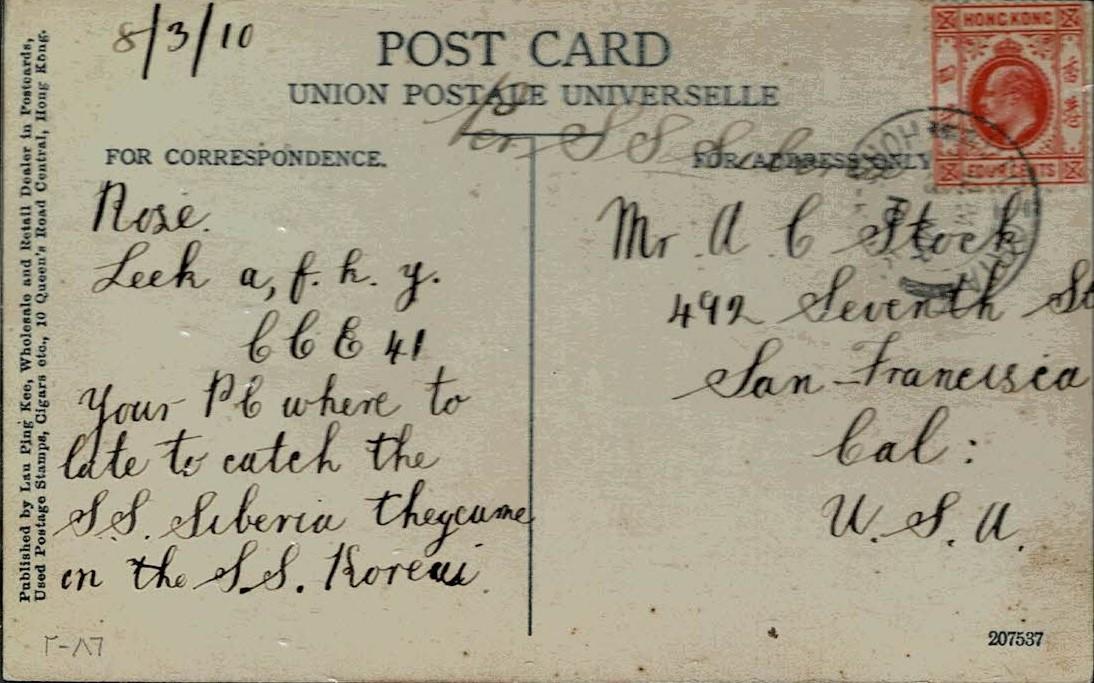 8/3/10
POST CARD
UNION POSTALE UNIVERSELLE
per S S Siberia
FOR CORRESPONDENCE.
Rose.
Leek a, f. h. y.
C C E 41
Your P C where to
late to catch the
S.S. Siberia they came
on the S.S. Korea
FOR ADDRESS ONLY
Mr. A C Stock
492 Seventh St
San-Francisca
Cal:
U.S.A.
HONG KONG
FOUR CENTS
Published by Lau Ping Kee, Wholesale and Retail Dealer in Postcards,
Used Postage Stamps, Cigars etc., 10 Queen's Road Central, Hong Kong.
207537